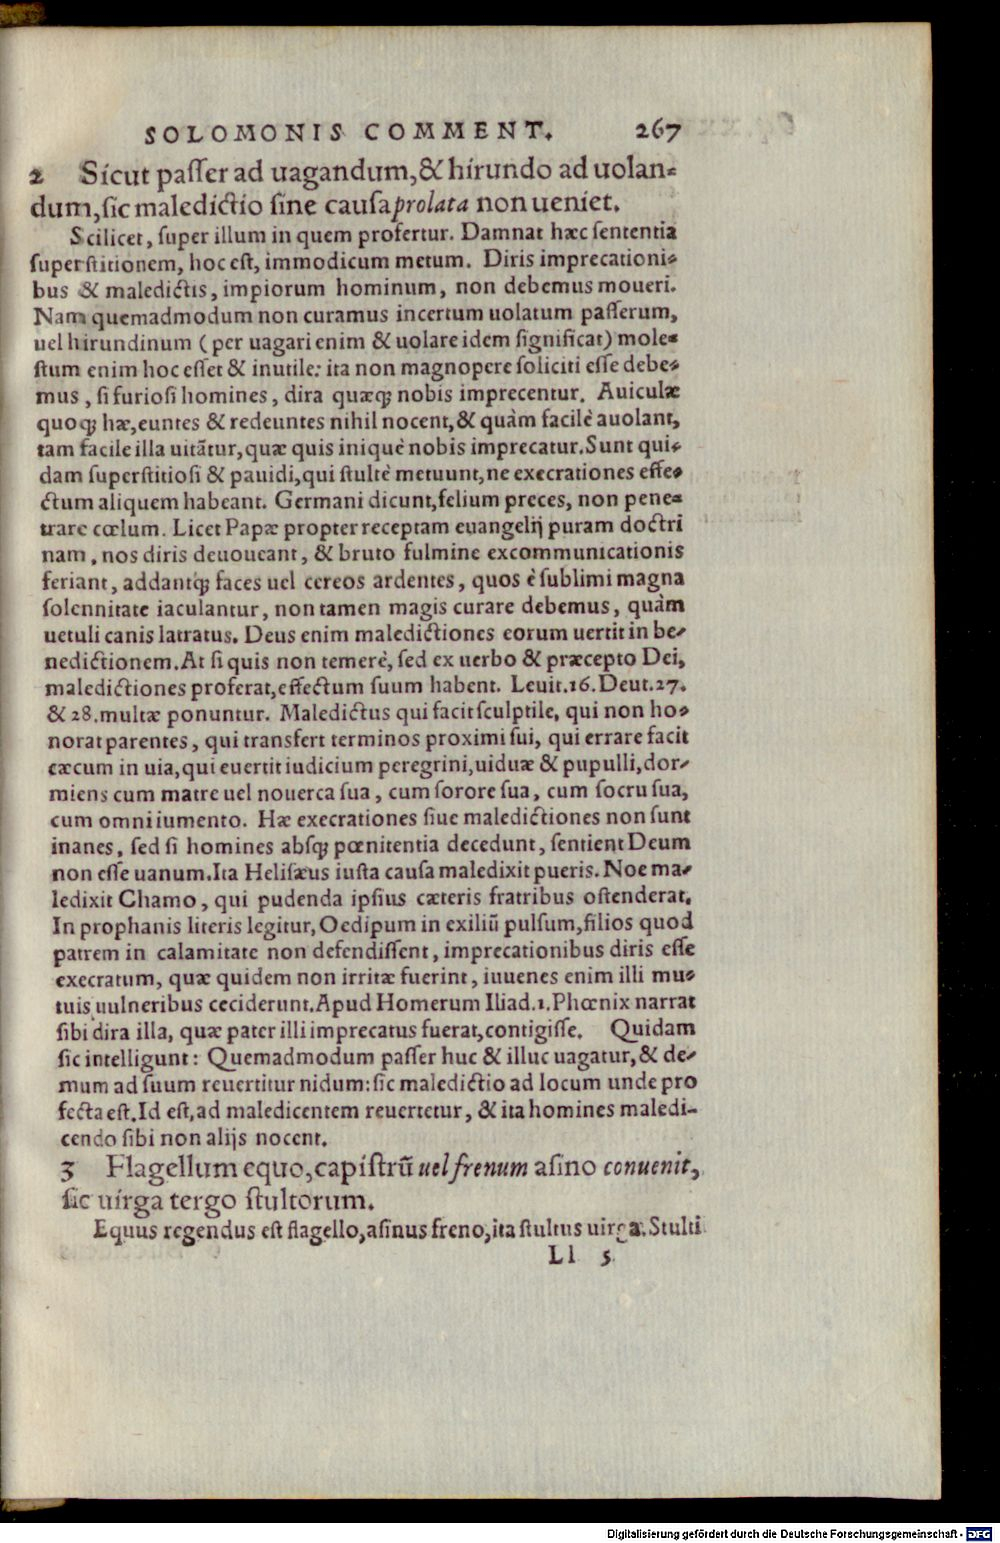 SOLOMONIS COMMENT. 267
2 Sicut passer ad uagandum, & hirundo ad uolan-
dum, sic maledictio sine causa prolata non ueniet.
Scilicet, super illum in quem profertur. Damnat hæc sententia
superstitionem, hoc est, immodicum metum. Diris imprecationi-
bus & maledictis, impiorum hominum, non debemus moueri.
Nam quemadmodum non curamus incertum uolatum passerum,
uel hirundinum (per uagari enim & uolare idem significat) mole-
stum enim hoc esset & inutile: ita non magnopere soliciti esse debe-
mus, si furiosi homines, dira quæq; nobis imprecentur. Auiculæ
quoq; hæ, euntes & redeuntes nihil nocent, & quàm facilè auolant,
tam facile illa uitātur, quæ quis iniquè nobis imprecatur. Sunt qui-
dam superstitiosi & pauidi, qui stultè metuunt, ne execrationes effe-
ctum aliquem habeant. Germani dicunt, felium preces, non pene-
trare cœlum. Licet Papæ propter receptam euangelij puram doctri
nam, nos diris deuoueant, & bruto fulmine excommunicationis
feriant, addantq; faces uel cereos ardentes, quos è sublimi magna
solennitate iaculantur, non tamen magis curare debemus, quàm
uetuli canis latratus. Deus enim maledictiones eorum uertit in be-
nedictionem. At si quis non temerè, sed ex uerbo & præcepto Dei,
maledictiones proferat, effectum suum habent. Leuit. 16. Deut. 27.
& 28. multæ ponuntur. Maledictus qui facit sculptile, qui non ho-
norat parentes, qui transfert terminos proximi sui, qui errare facit
cæcum in uia, qui euertit iudicium peregrini, uiduæ & pupulli, dor-
miens cum matre uel nouerca sua, cum sorore sua, cum socru sua,
cum omni iumento. Hæ execrationes siue maledictiones non sunt
inanes, sed si homines absq; pœnitentia decedunt, sentient Deum
non esse uanum. Ita Helisæus iusta causa maledixit pueris. Noe ma-
ledixit Chamo, qui pudenda ipsius cæteris fratribus ostenderat.
In prophanis literis legitur, Oedipum in exiliū pulsum, filios quod
patrem in calamitate non defendissent, imprecationibus diris esse
execratum, quæ quidem non irritæ fuerint, iuuenes enim illi mu-
tuis uulneribus ceciderunt. Apud Homerum Iliad. 1. Phœnix narrat
sibi dira illa, quæ pater illi imprecatus fuerat, contigisse. Quidam
sic intelligunt: Quemadmodum passer huc & illuc uagatur, & de-
mum ad suum reuertitur nidum: sic maledictio ad locum unde pro
fecta est. Id est, ad maledicentem reuertetur, & ita homines maledi-
cendo sibi non alijs nocent.
3 Flagellum equo, capistrū uel frenum asino conuenit,
sic uirga tergo stultorum.
Equus regendus est flagello, asinus freno, ita stultus uirga. Stulti
Ll 5
Digitalisierung gefördert durch die Deutsche Forschungsgemeinschaft - DFG